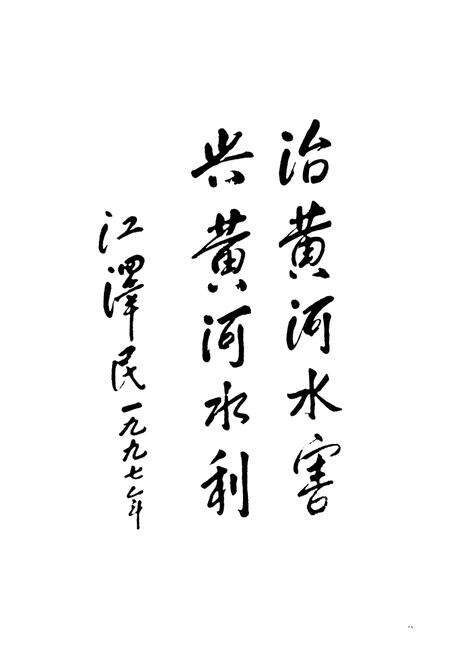 治黄河水害
兴黄河水利
江泽民一九九七年